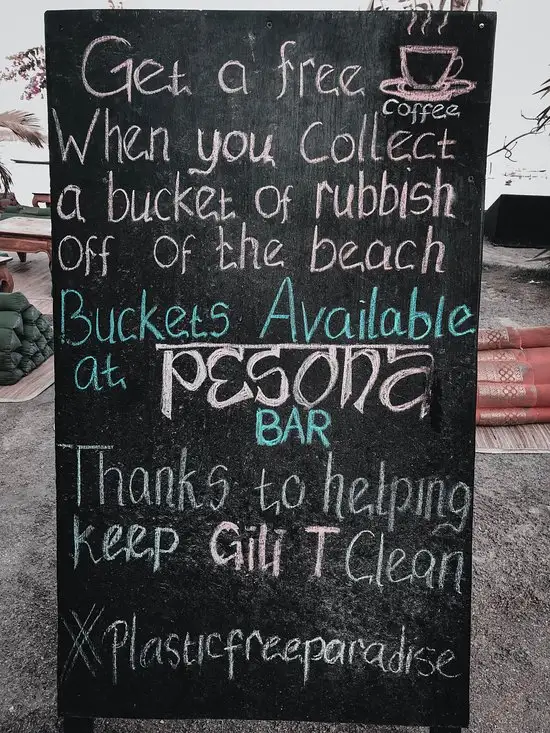 Get a free
coffee
When you Collect
a bucket of rubbish
off of the beach
Buckets Available
at PESONA
BAR
Thanks to helping
keep Gili T Clean
#Plasticfreeparadise